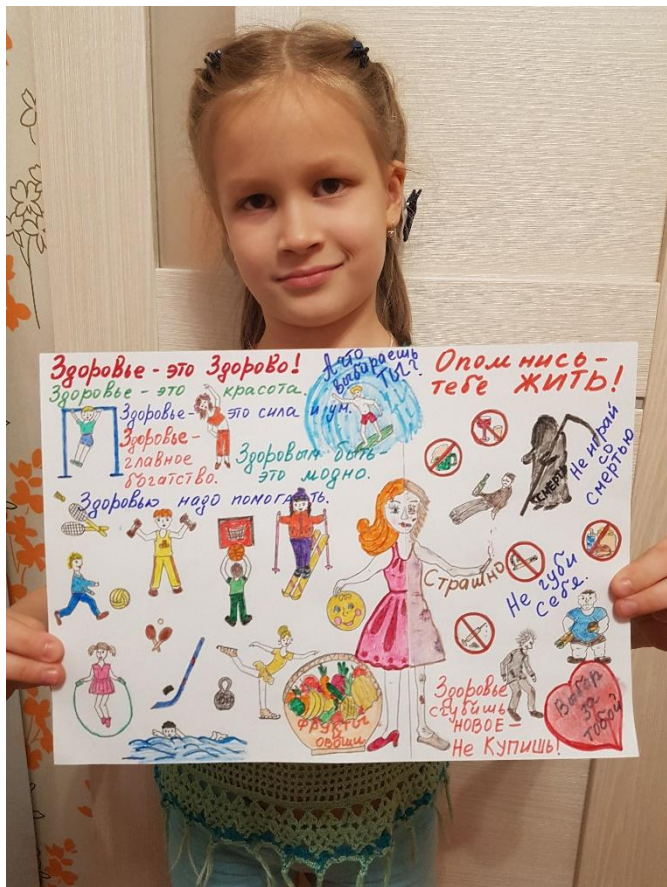 Здоровье - это Здорово!
Здоровье - это красота.
Здоровье - это сила и ум.
Здоровье -
главное
богатство.
Здоровым быть -
это модно.
Здоровью надо помогать.
А что
выбираешь
ТЫ?
Опомнись -
тебе ЖИТЬ!
Не играй
со
смертью
СМЕРТЬ
Страшно
Не губи
себя.
ФРУКТЫ
ОВОЩИ
Здоровье
сгубишь
НОВОЕ -
Не КУПИШЬ!
Выбор
за
тобой